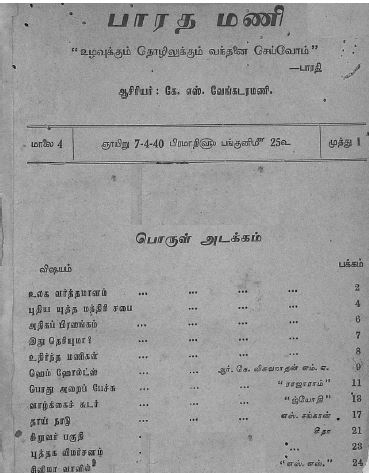 பாரத மணி
"உழவுக்கும் தொழிலுக்கும் வந்தனை செய்வோம்"
—பாரதி
ஆசிரியர் : கே. எஸ். வேங்கடரமணி.
மாலை 4 ஞாயிறு 7-4-40 பிரமாதி௵ பங்குனி௴ 25௳ முத்து 1
பொருள் அடக்கம்
விஷயம் பக்கம்
உலக வர்த்தமானம் ... ... ... ... 2
புதிய யுத்த மந்திரி சபை ... ... ... 4
அதிகப் பிரஸங்கம் ... ... ... ... 6
இது தெரியுமா? ... ... ... ... 7
உதிர்ந்த மணிகள் ... ... ... ... 8
ஹெம் ஹோல்ட்ஸ் ... ... ஆர். கே. விசுவநாதன் எம். ஏ. 9
பொது அறைப் பேச்சு ... ... ... "ராஜாராம்" 11
வாழ்க்கைச் சுடர் ... ... ... "ஜ்யோதி" 13
தாய் நாடு ... ... ... எஸ். சங்கரன் 17
சிறுவர் பகுதி ... ... ... சீதா 21
புத்தக விமர்சனம் ... ... ... ... 23
சினிமா வானில் ... ... ... "எஸ். எஸ்." 24